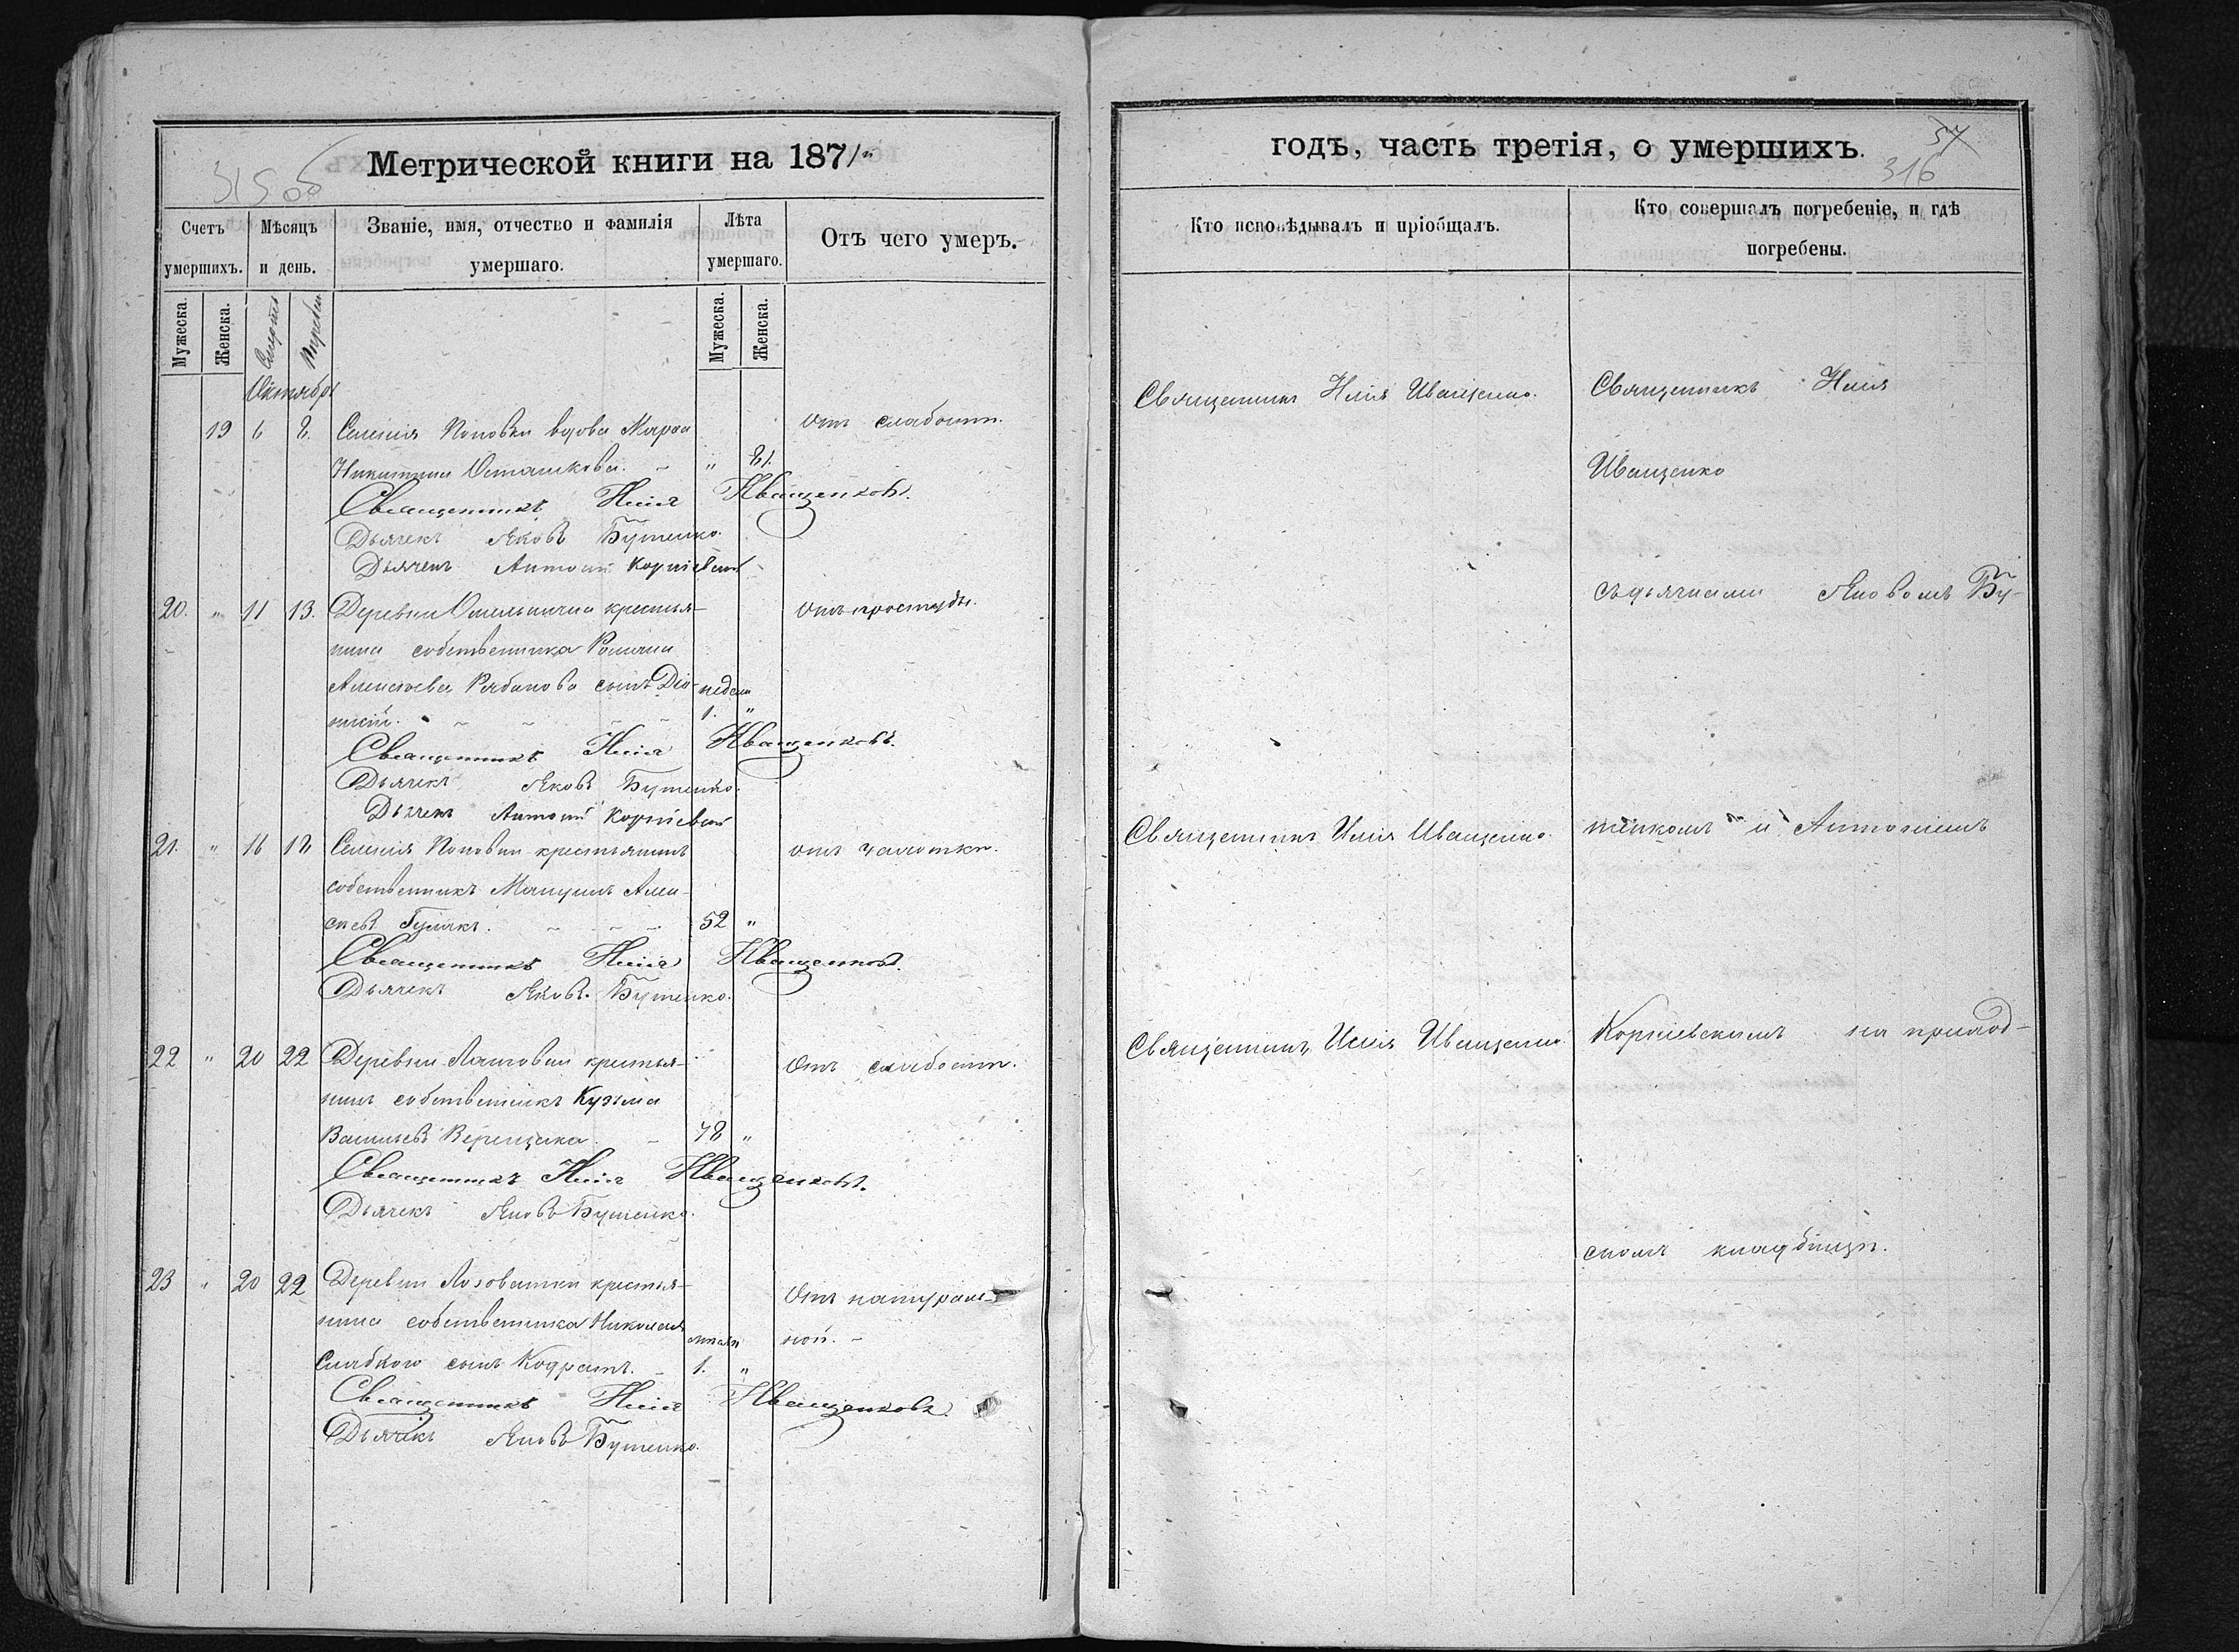 315 об
Метрической книги на 1871й
Счетъ умершихъ.
Мѣсяцъ и день.
Званіе, имя, отчество и фамилія умершаго.
Лѣта умершаго.
Отъ чего умеръ.
Мужеска.
Женска.
Смерти
Погребен.
Мужеска.
Женска.
Октябрь
19 6 8. Селенія Поповки вдова Марѳа Отъ слабости.
Никитина Осташкова. " 81.
Священникъ Илія Иващенковъ.
Дьячекъ Яковъ Бутенко.
Дьячекъ Антоній Корніевскій
20. " 11 13. Деревни крестья- Отъ простуды.
нина собственника Романа
Алексѣева Рябинова сынъ Діо- недѣли
нисій. 1. "
Священникъ Илія Иващенковъ.
Дьячекъ Яковъ Бутенко.
Дьячекъ Антоній Корніевскій
21. " 16 18 Селенія Поповки крестьянинъ отъ чахотки.
собственникъ Алек-
сѣевъ Гулякъ. 52 "
Священникъ Илія Иващенковъ.
Дьячекъ Яковъ Бутенко.
22 " 20 22 Деревни крестья- Отъ слабости.
нинъ собственникъ Кузьма
Васильевъ Верещака. 78 "
Священникъ Илія Иващенковъ.
Дьячекъ Яковъ Бутенко.
23 " 20 22 Деревни Лозоватки крестья- Отъ натураль-
нина собственника Николая ной.
Слабкого сынъ Кодратъ. 1. "
Священникъ Илія Иващенковъ.
Дьячекъ Яковъ Бутенко.
годъ, часть третія, о умершихъ.
57
316
Кто исповѣдывалъ и пріобщалъ.
Кто совершалъ погребеніе, и гдѣ погребены.
Священникъ Илія Иващенко.
Священникъ Илія
Иващенко
съ дьячками Яковомъ Бу-
Священникъ Илія Иващенко.
тенкомъ и Антоніемъ
Священникъ Илія Иващенко
Корніевскимъ на приход-
скомъ кладбищѣ.